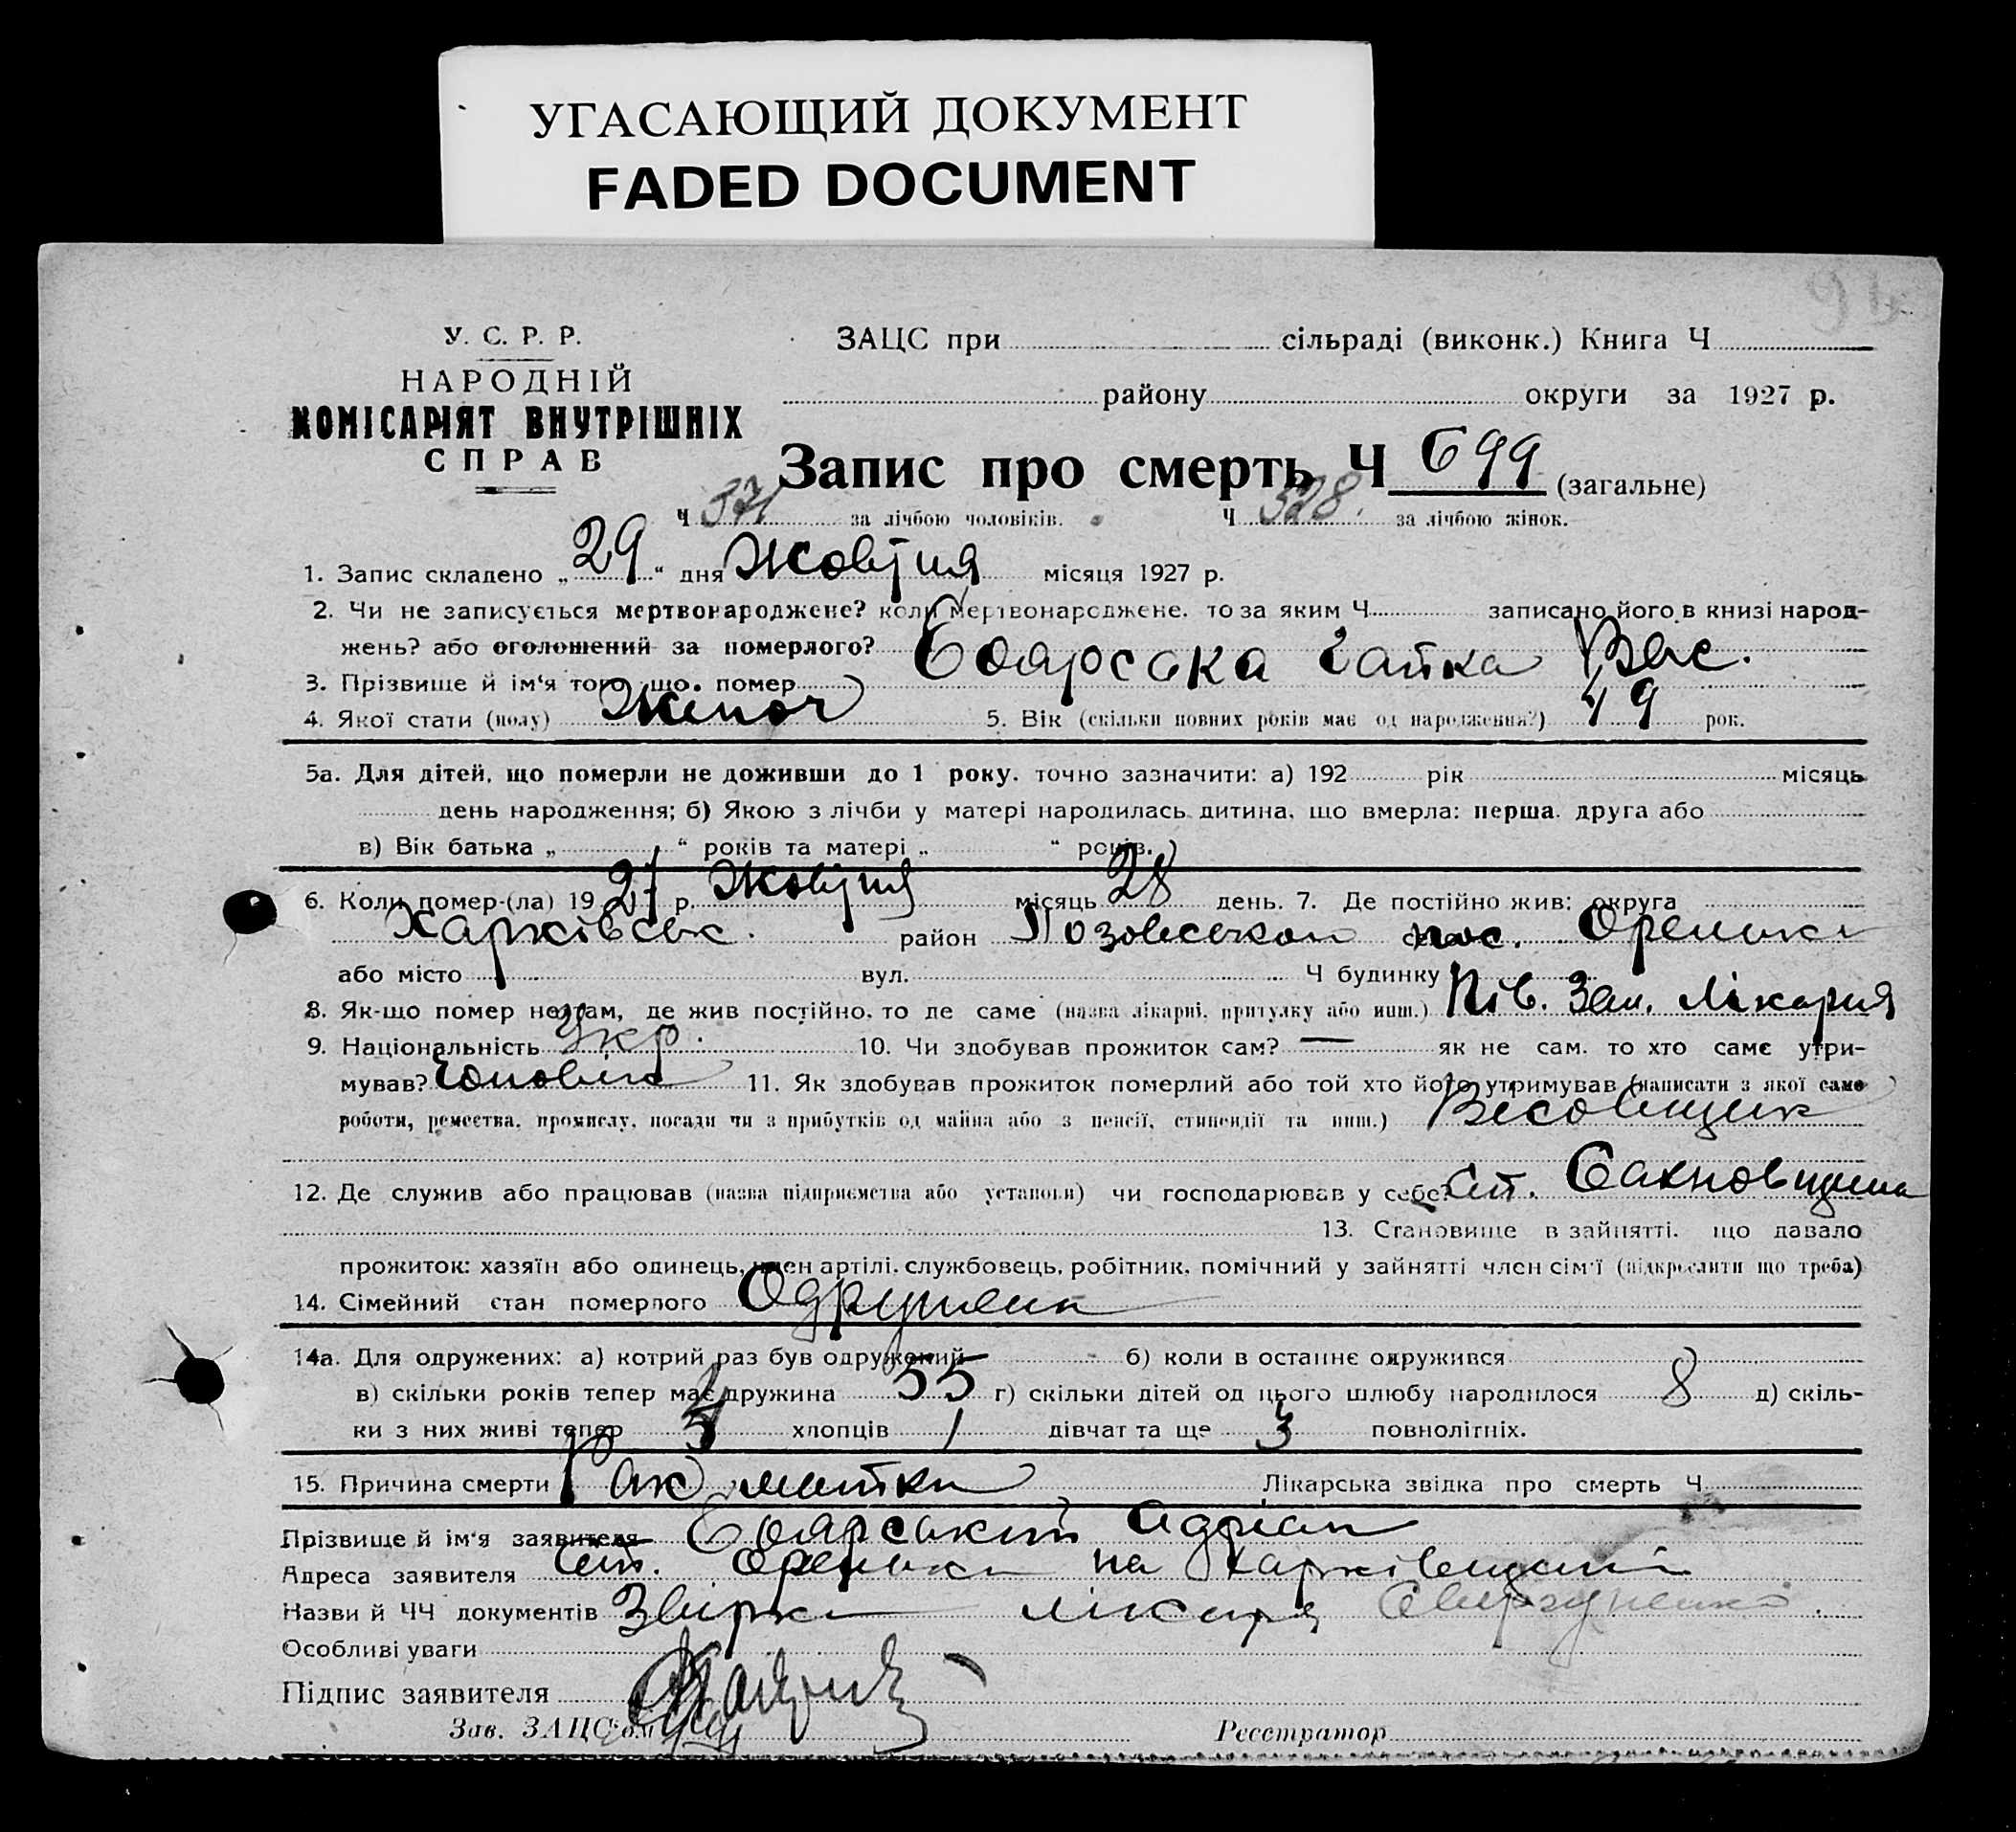 УГАСАЮЩИЙ ДОКУМЕНТ
FADED DOCUMENT
У. С. Р. Р.
НАРОДНІЙ
КОМІСАРІЯТ ВНУТРІШНІХ
СПРАВ
ЗАЦС при сільраді (виконк.) Книга Ч
району округи за 1927 р.
Запис про смерть Ч 699 (загальне)
Ч 371 за лічбою чоловіків. Ч 328. за лічбою жінок.
1. Запис складено „29“ дня Жовтня місяця 1927 р.
2. Чи не записується мертвонароджене? коли мертвонароджене, то за яким Ч записано його в книзі народ-
жень? або оголошений за померлого?
3. Прізвище й ім'я того, що помер Боярська Гапка Вас.
4. Якої статі (полу) Жіноч 5. Вік (скільки повних років має од народження?) 49 рок.
5а. Для дітей, що померли не доживши до 1 року, точно зазначити: а) 192 рік місяць
день народження; б) Якою з лічби у матері народилась дитина, що вмерла: перша, друга або
в) Вік батька „ “ років та матері „ “ років.
6. Коли помер-(ла) 1927 р. Жовтня місяць 28 день. 7. Де постійно жив: округа
Харківськ. район Лозовеськои пос. Орельки
або місто вул. Ч будинку
8. Як-що помер не там, де жив постійно, то де саме (назва лікарні, притулку або инш.) Пів. Зал. Лікарня
9. Національність Укр. 10. Чи здобував прожиток сам? — як не сам, то хто саме утри-
мував? Чоловік 11. Як здобував прожиток померлий або той хто його утримував (написати з якої саме
роботи, ремества, промислу, посади чи з прибутків од майна або з пенсії, стипендії та инш.) Весовщик
12. Де служив або працював (назва підприємства або установи) чи господарював у себе? Ст. Сахновщина
13. Становище в зайнятті, що давало
прожиток: хазяїн або одинець, член артілі, службовець, робітник, помічний у зайнятті член сім'ї (підкреслити що треба)
14. Сімейний стан померлого Одружена
14а. Для одружених: а) котрий раз був одружений б) коли в останнє одружився
в) скільки років тепер має дружина 55 г) скільки дітей од цього шлюбу народилося 8 д) скіль-
ки з них живі тепер хлопців 1 дівчат та ще 3 повнолітніх.
15. Причина смерти Рак матки Лікарська звідка про смерть Ч
Прізвище й ім'я заявителя Боярський Адріан
Адреса заявителя Ст. Орельки на Харківщині
Назви й ЧЧ документів лікаря
Особливі уваги
Підпис заявителя
Зав. ЗАЦС'ом Реєстратор